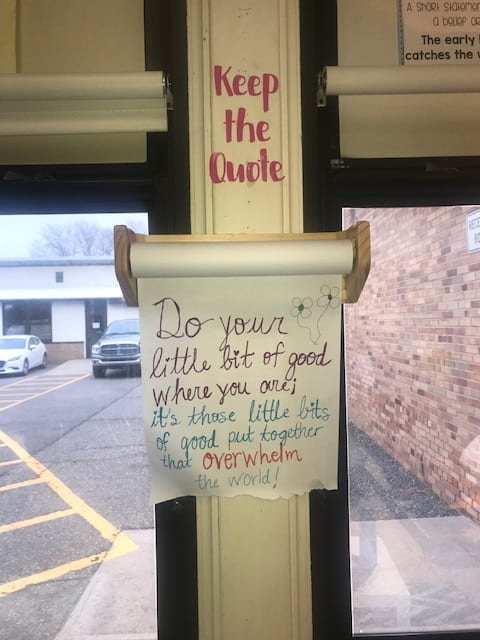 A short statemen
a belief or
The early
catches the w
Keep
the
Quote
Do your
little bit of good
where you are;
it's those little bits
of good put together
that overwhelm
the world!